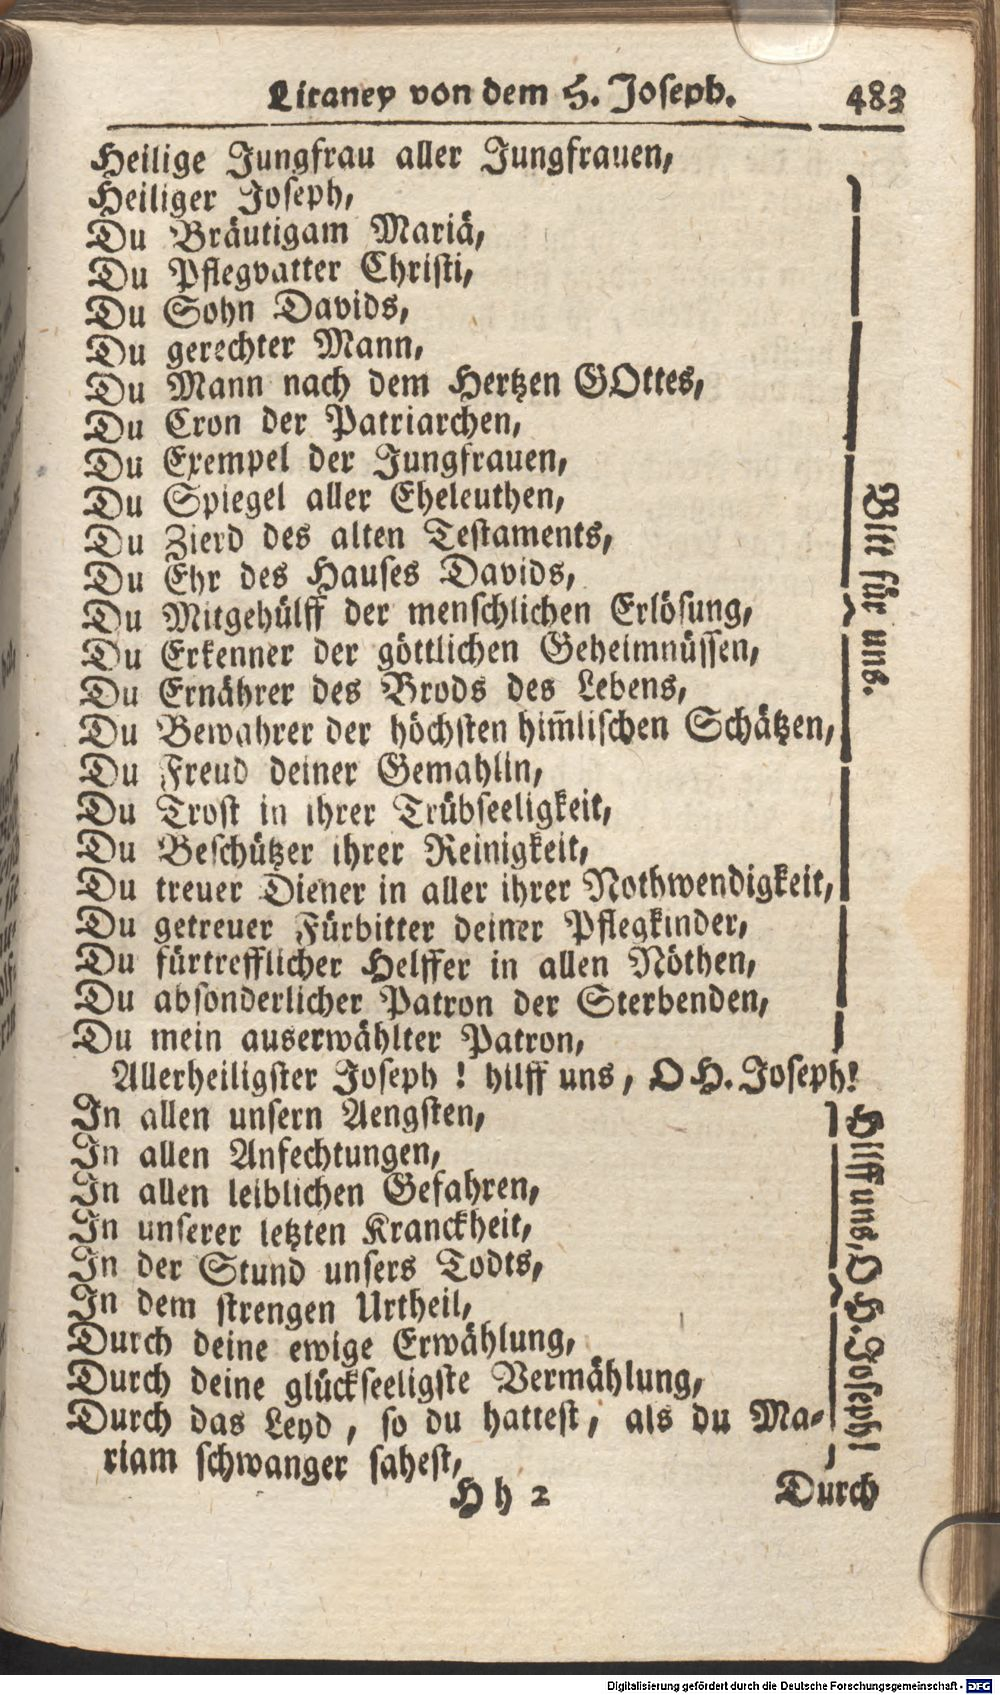 Litaney von dem H. Joseph. 483
Heilige Jungfrau aller Jungfrauen,
Heiliger Joseph,
Du Bräutigam Mariä,
Du Pflegvatter Christi,
Du Sohn Davids,
Du gerechter Mann,
Du Mann nach dem Hertzen GOttes,
Du Cron der Patriarchen,
Du Exempel der Jungfrauen,
Du Spiegel aller Eheleuthen,
Du Zierd des alten Testaments,
Du Ehr des Hauses Davids,
Du Mitgehülff der menschlichen Erlösung,
Du Erkenner der göttlichen Geheimnüssen,
Du Ernährer des Brods des Lebens,
Du Bewahrer der höchsten him̃lischen Schätzen,
Du Freud deiner Gemahlin,
Du Trost in ihrer Trübseeligkeit,
Du Beschützer ihrer Reinigkeit,
Du treuer Diener in aller ihrer Nothwendigkeit,
Du getreuer Fürbitter deiner Pflegkinder,
Du fürtrefflicher Helffer in allen Nöthen,
Du absonderlicher Patron der Sterbenden,
Du mein auserwählter Patron,
Bitt für uns.
Allerheiligster Joseph! hilff uns, O H. Joseph!
In allen unsern Aengsten,
In allen Anfechtungen,
In allen leiblichen Gefahren,
In unserer letzten Kranckheit,
In der Stund unsers Todts,
In dem strengen Urtheil,
Durch deine ewige Erwählung,
Durch deine glückseeligste Vermählung,
Durch das Leyd, so du hattest, als du Ma-
riam schwanger sahest,
Hilff uns, O H. Joseph!
H h 2 Durch
Digitalisierung gefördert durch die Deutsche Forschungsgemeinschaft - DFG